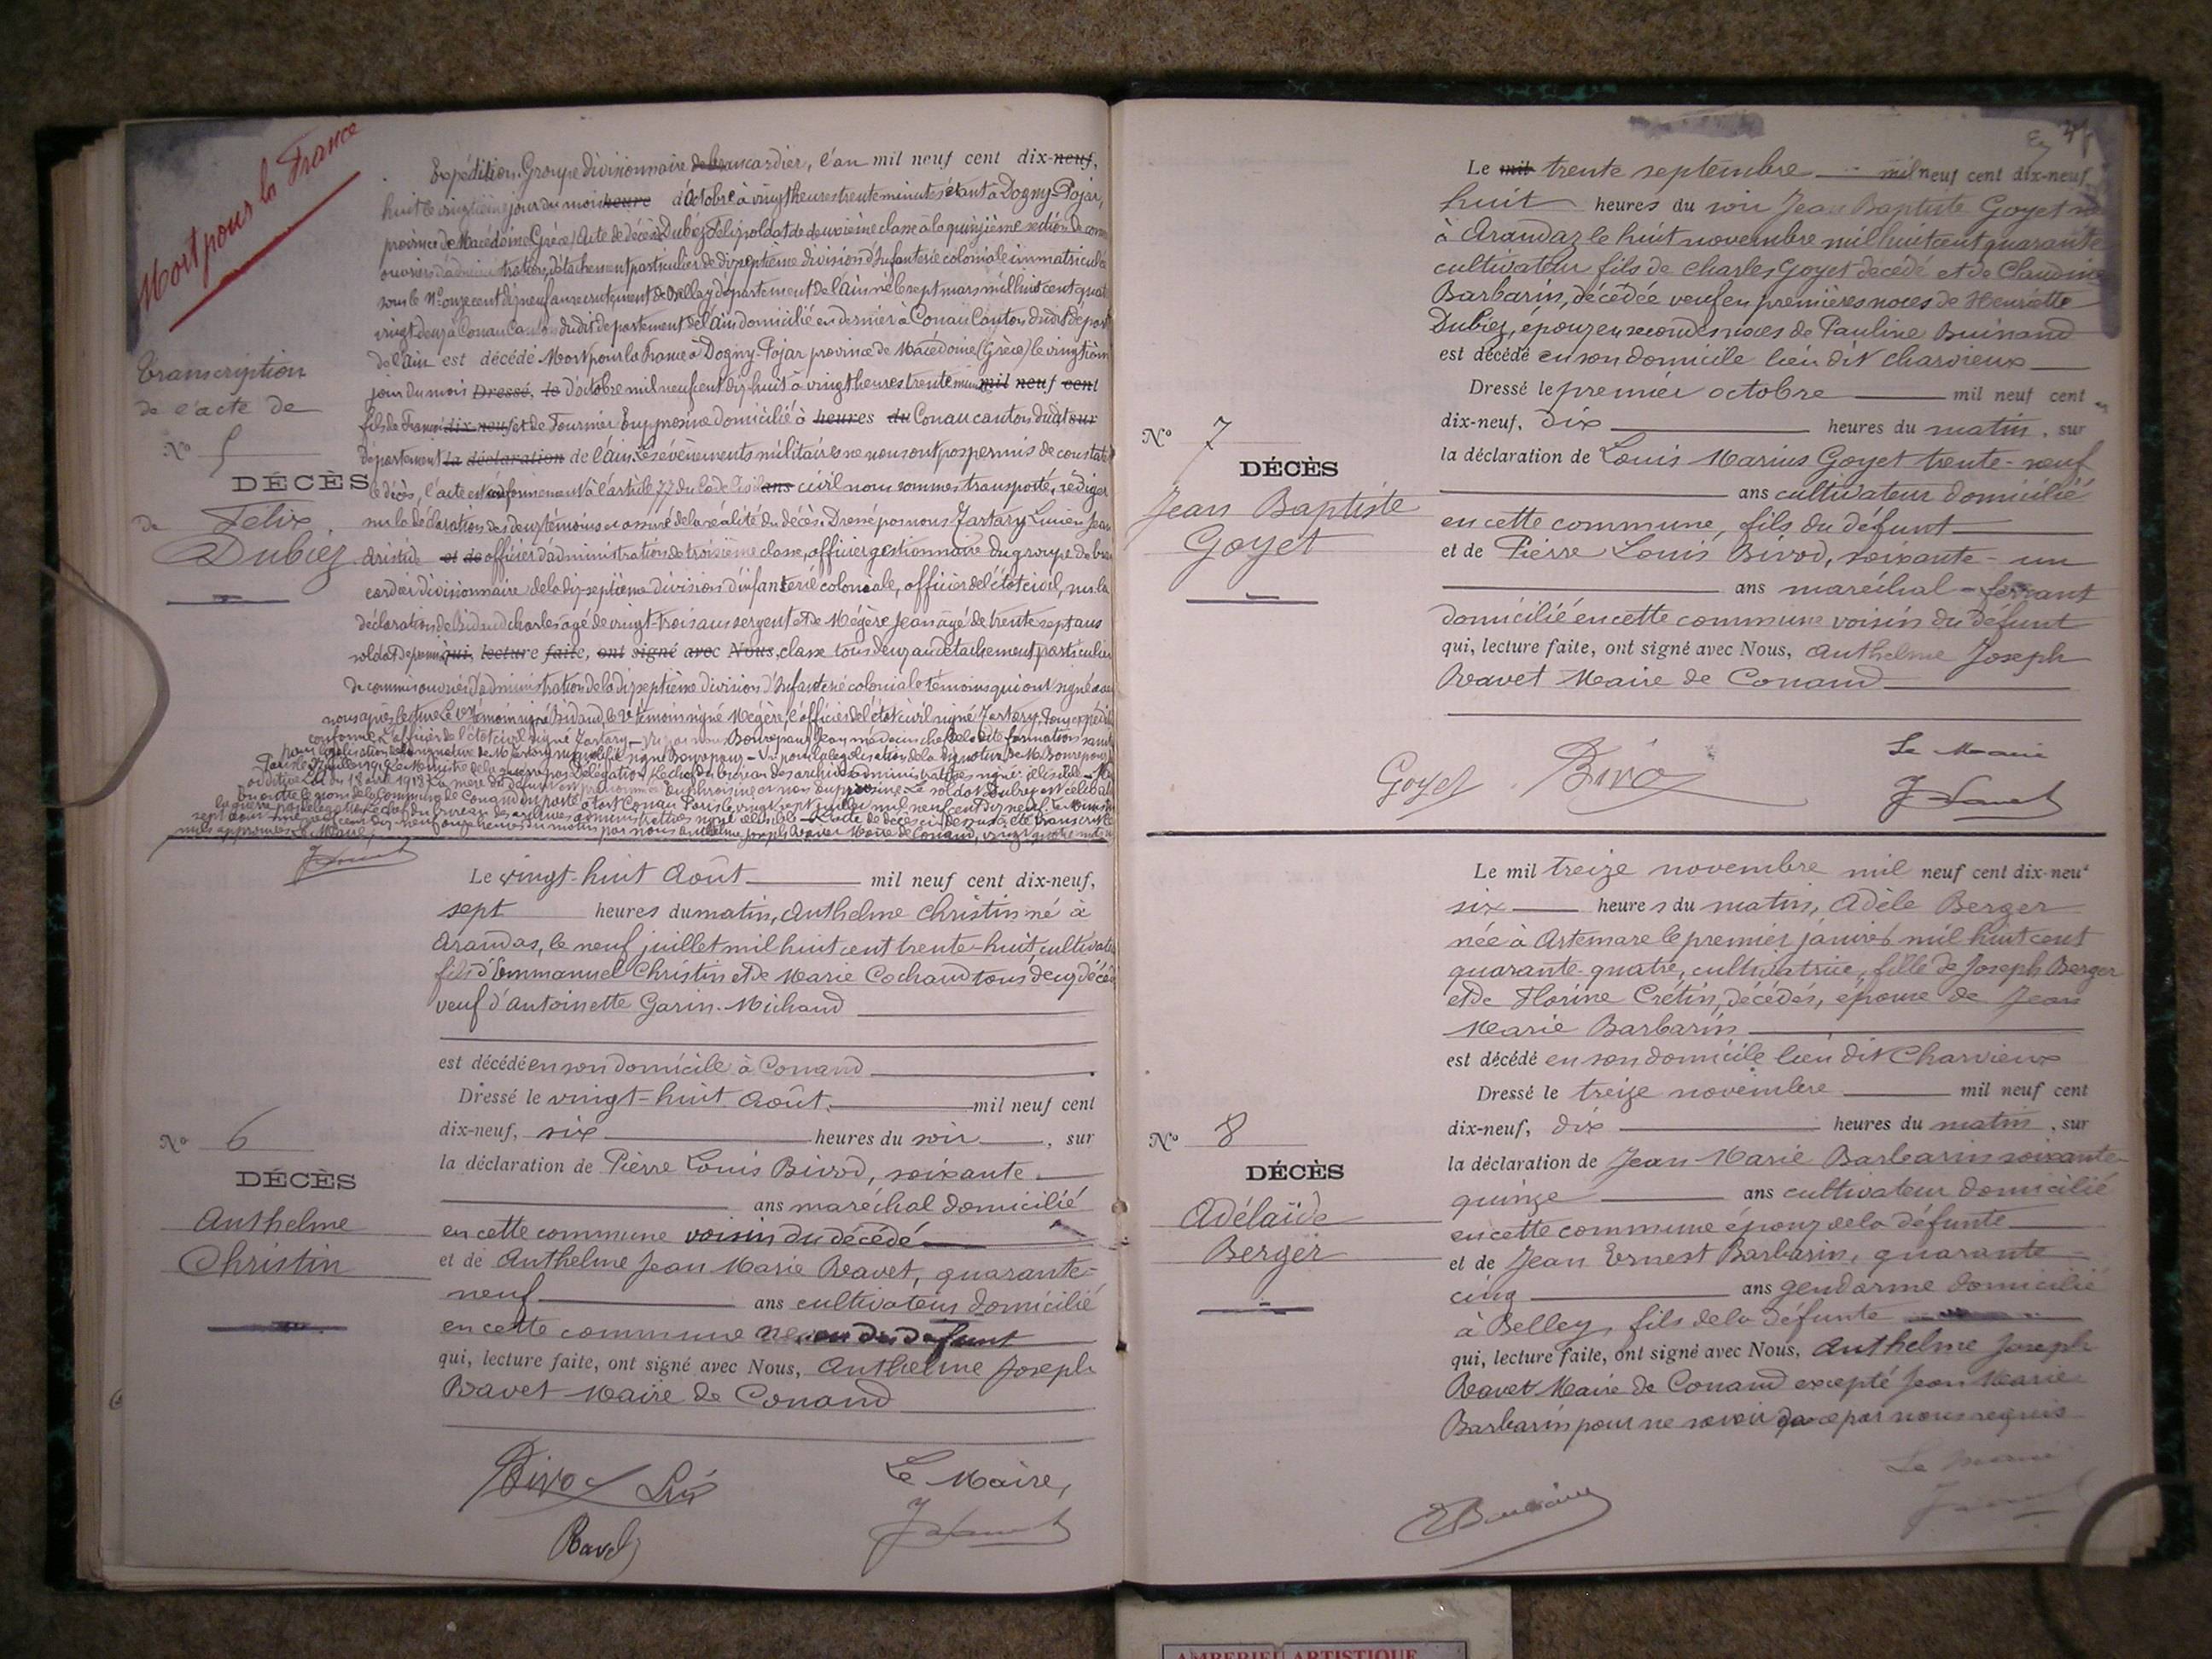 Mort pour la France
Transcription
de l'acte de
No 5
DÉCÈS
de Felix
Dubiez
Expédition. Groupe divisionnaire de brancardier, l'an mil neuf cent dix-neuf,
huit le vingtième jour du mois heure d'Octobre à vingt heures trente minutes étant à Dogny-Pojar,
province de Macédoine (Grèce) Acte de décès de Dubiez Felix soldat de deuxième classe à la quinzième section de
ouvriers d'administration, détachement particulier de dix septième division d'Infanterie coloniale immatriculé
sous le No onze cent dix neuf au recrutement de Belley département de l'Ain né le sept mars mil huit cent quatre
vingt deux à Conau Canton dudit département de l'Ain domicilié en dernier à Conau Canton dudit
de l'Ain est décédé Mort pour la France à Dogny-Pojar province de Macédoine (Grèce) le vingtième
jour du mois Dressé, le d'octobre mil neuf cent dix huit à vingt heures trente mil neuf cent
fils de dix-neuf et de Tournier Euprosine domicilié à heures du Conau canton dudit sur
département la déclaration de l'Ain. Les évènements militaires ne nous ont pas permis de constater
le décès, l'acte est conformément à l'article 77 du code civil ans civil nous sommes transporté, rédiger
sur la déclaration des deux témoins et assuré de la réalité du décès. Dressé par nous Tartary Lucien Jean
Aristide et de officier d'administration de troisième classe, officier gestionnaire du groupe de
divisionnaire de la dix-septième division d'infanterie coloniale, officier de l'état civil, sur la
déclaration de Bidaud charles agé de vingt-trois ans sergent et de Mégère Jean agé de trente sept ans
soldat de qui, lecture faite, ont signé avec Nous, classe tous deux au détachement particulier
de commis ouvriers d'administration de la dix septième division d'Infanterie coloniale témoins qui ont signé avec
nous après lecture. Le 1er témoin signé Bidaud, le 2e témoin signé Mégère, l'officier de l'état civil signé Tartary. Pour expédition
conforme. L'officier de l'état civil signé Tartary
Le vingt-huit Août mil neuf cent dix-neuf,
sept heures du matin, Anthelme Christin né à
Arandas, le neuf juillet mil huit cent trente-huit, cultivateur
fils d'Emmanuel Christin et de Marie Cochaud tous deux
veuf d'Antoinette Garin-Michaud
est décédé en son domicile à Conand
Dressé le vingt-huit Août, mil neuf cent
dix-neuf, six heures du soir, sur
la déclaration de Pierre Louis Bivod, soixante
ans maréchal domicilié
en cette commune voisin du décédé
et de Anthelme Jean Marie Ravet, quarante-
neuf ans cultivateur domicilié
en cette commune neveu du défunt
qui, lecture faite, ont signé avec Nous, Anthelme Joseph
Ravet Maire de Conand
No 6
DÉCÈS
Anthelme
Christin
Le Maire,
Ravet
Le mil trente septembre mil neuf cent dix-neuf
huit heures du soir Jean Baptiste Goyet né
à Arandaz le huit novembre mil huit cent quarante
cultivateur fils de Charles Goyet décédé et de Claudine
Barbarin, décédée veuf en premières noces de Henriette
Dubiez, époux en secondes noces de Pauline Buinand
est décédé en son domicile lieu dit Charvieux
Dressé le premier octobre mil neuf cent
dix-neuf, dix heures du matin, sur
la déclaration de Louis Marius Goyet trente-neuf
ans cultivateur domicilié
en cette commune, fils du défunt
et de Pierre Louis Bivod, soixante-un
ans maréchal-ferrant
domicilié en cette commune voisin du défunt
qui, lecture faite, ont signé avec Nous, Anthelme Joseph
Ravet Maire de Conand
No 7
DÉCÈS
Jean Baptiste
Goyet
Goyet
Le Maire
Le mil treize novembre mil neuf cent dix-neuf
six heures du matin, Adèle Berger
née à Artemare le premier janvier mil huit cent
quarante-quatre, cultivatrice, fille de Joseph Berger
et de Florine Crétin, décédés, épouse de Jean
Marie Barbarin
est décédé en son domicile lieu dit Charvieux
Dressé le treize novembre mil neuf cent
dix-neuf, dix heures du matin, sur
la déclaration de Jean-Marie Barbarin soixante-
quinze ans cultivateur domicilié
en cette commune époux de la défunte
et de Jean Ernest Barbarin, quarante-
cinq ans gendarme domicilié
à Belley, fils de la défunte
qui, lecture faite, ont signé avec Nous, Anthelme Joseph
Ravet Maire de Conand excepté Jean Marie
Barbarin pour ne savoir de ce par nous requis
No 8
DÉCÈS
Adélaïde
Berger
Le Maire
AMBERIEU ARTISTIQUE